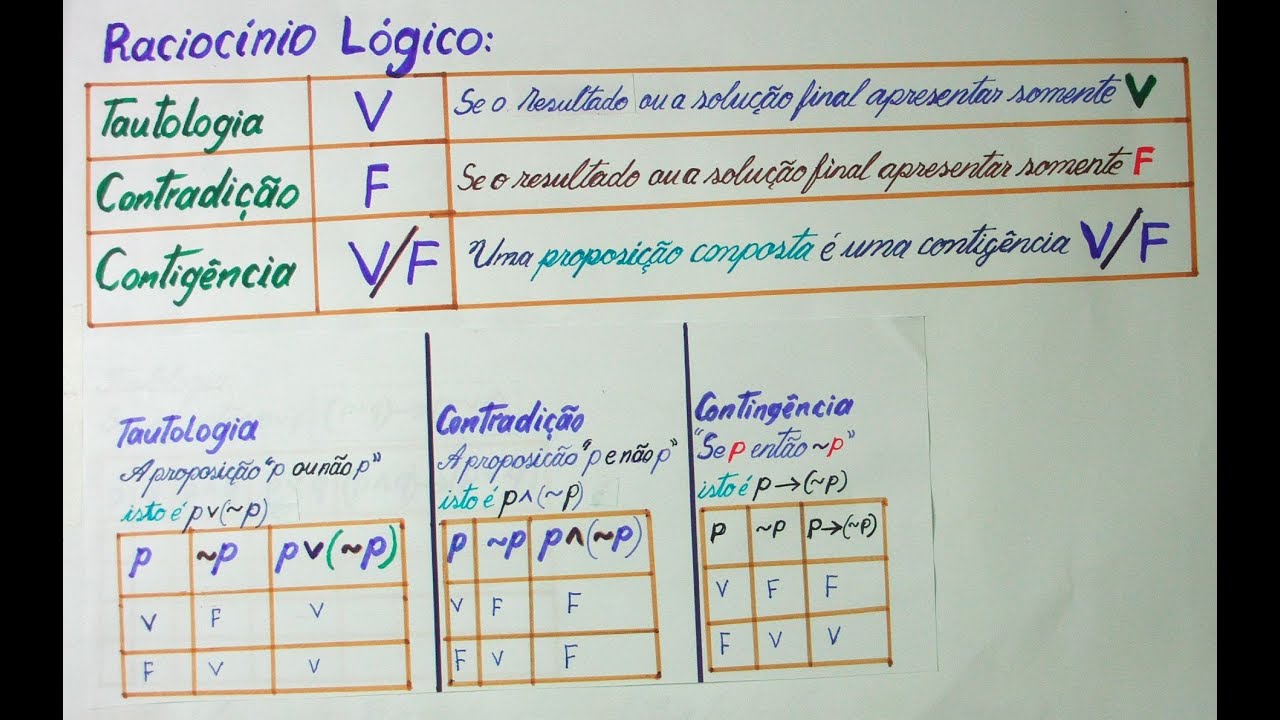 Raciocínio Lógico:
Tautologia V Se o resultado ou a solução final apresentar somente V
Contradição F Se o resultado ou a solução final apresentar somente F
Contigência V/F Uma proposição composta é uma contigência V/F
Tautologia
A proposição "p ou não p"
isto é p∨(~p)
p ~p p∨(~p)
V F V
F V V
Contradição
A proposição "p e não p"
isto é p∧(~p)
p ~p p∧(~p)
V F F
F V F
Contingência
"Se p então ~p"
isto é p→(~p)
p ~p p→(~p)
V F F
F V V